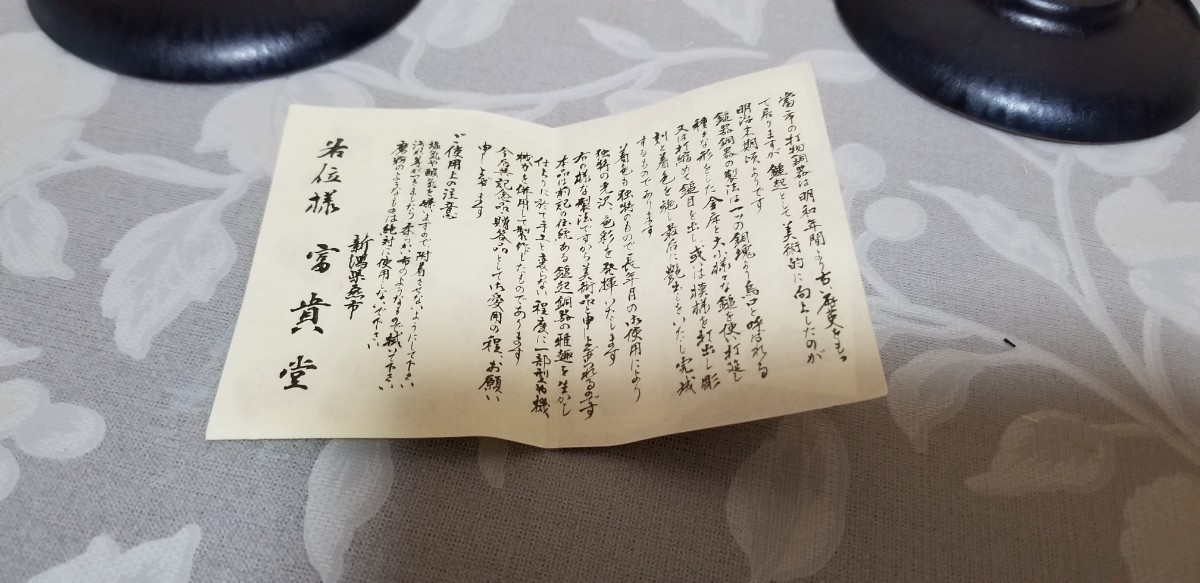 當市の打物銅器は明和年間より古い歴史をもつ
て居りますが鎚起として美術的に向上したのが
明治末期頃よりです
鎚器銅器の製法は一つの銅塊から烏口と呼ばれる
種々な形をした金床と大小様々な鎚を使い打延し
又は打縮めて鎚目を出し或は模様を打出し彫
刻と着色を施し最后に艶出しをいたし完成
するものであります
着色も独特のもので長年月の御使用により
独特の光沢、色彩を発揮いたします
右の様な製法ですから美術品と申し上げられるのです
本品は前記の伝統ある鎚起銅器の雅趣を生かし
仕上りに於て手工と変らない程度に一部型打機
械力を併用して製作したものであります
今后共記念品、贈答品として御愛用の程、お願い
申し上げます
ご使用上の注意
塩気や酸気を嫌いますので附着させないようにして下さい
汚れ等ができましたら柔かい布のようなもので拭いて下さい
磨粉のようなものは絶対に使用しないで下さい
新潟県燕市
各位様 富貴堂